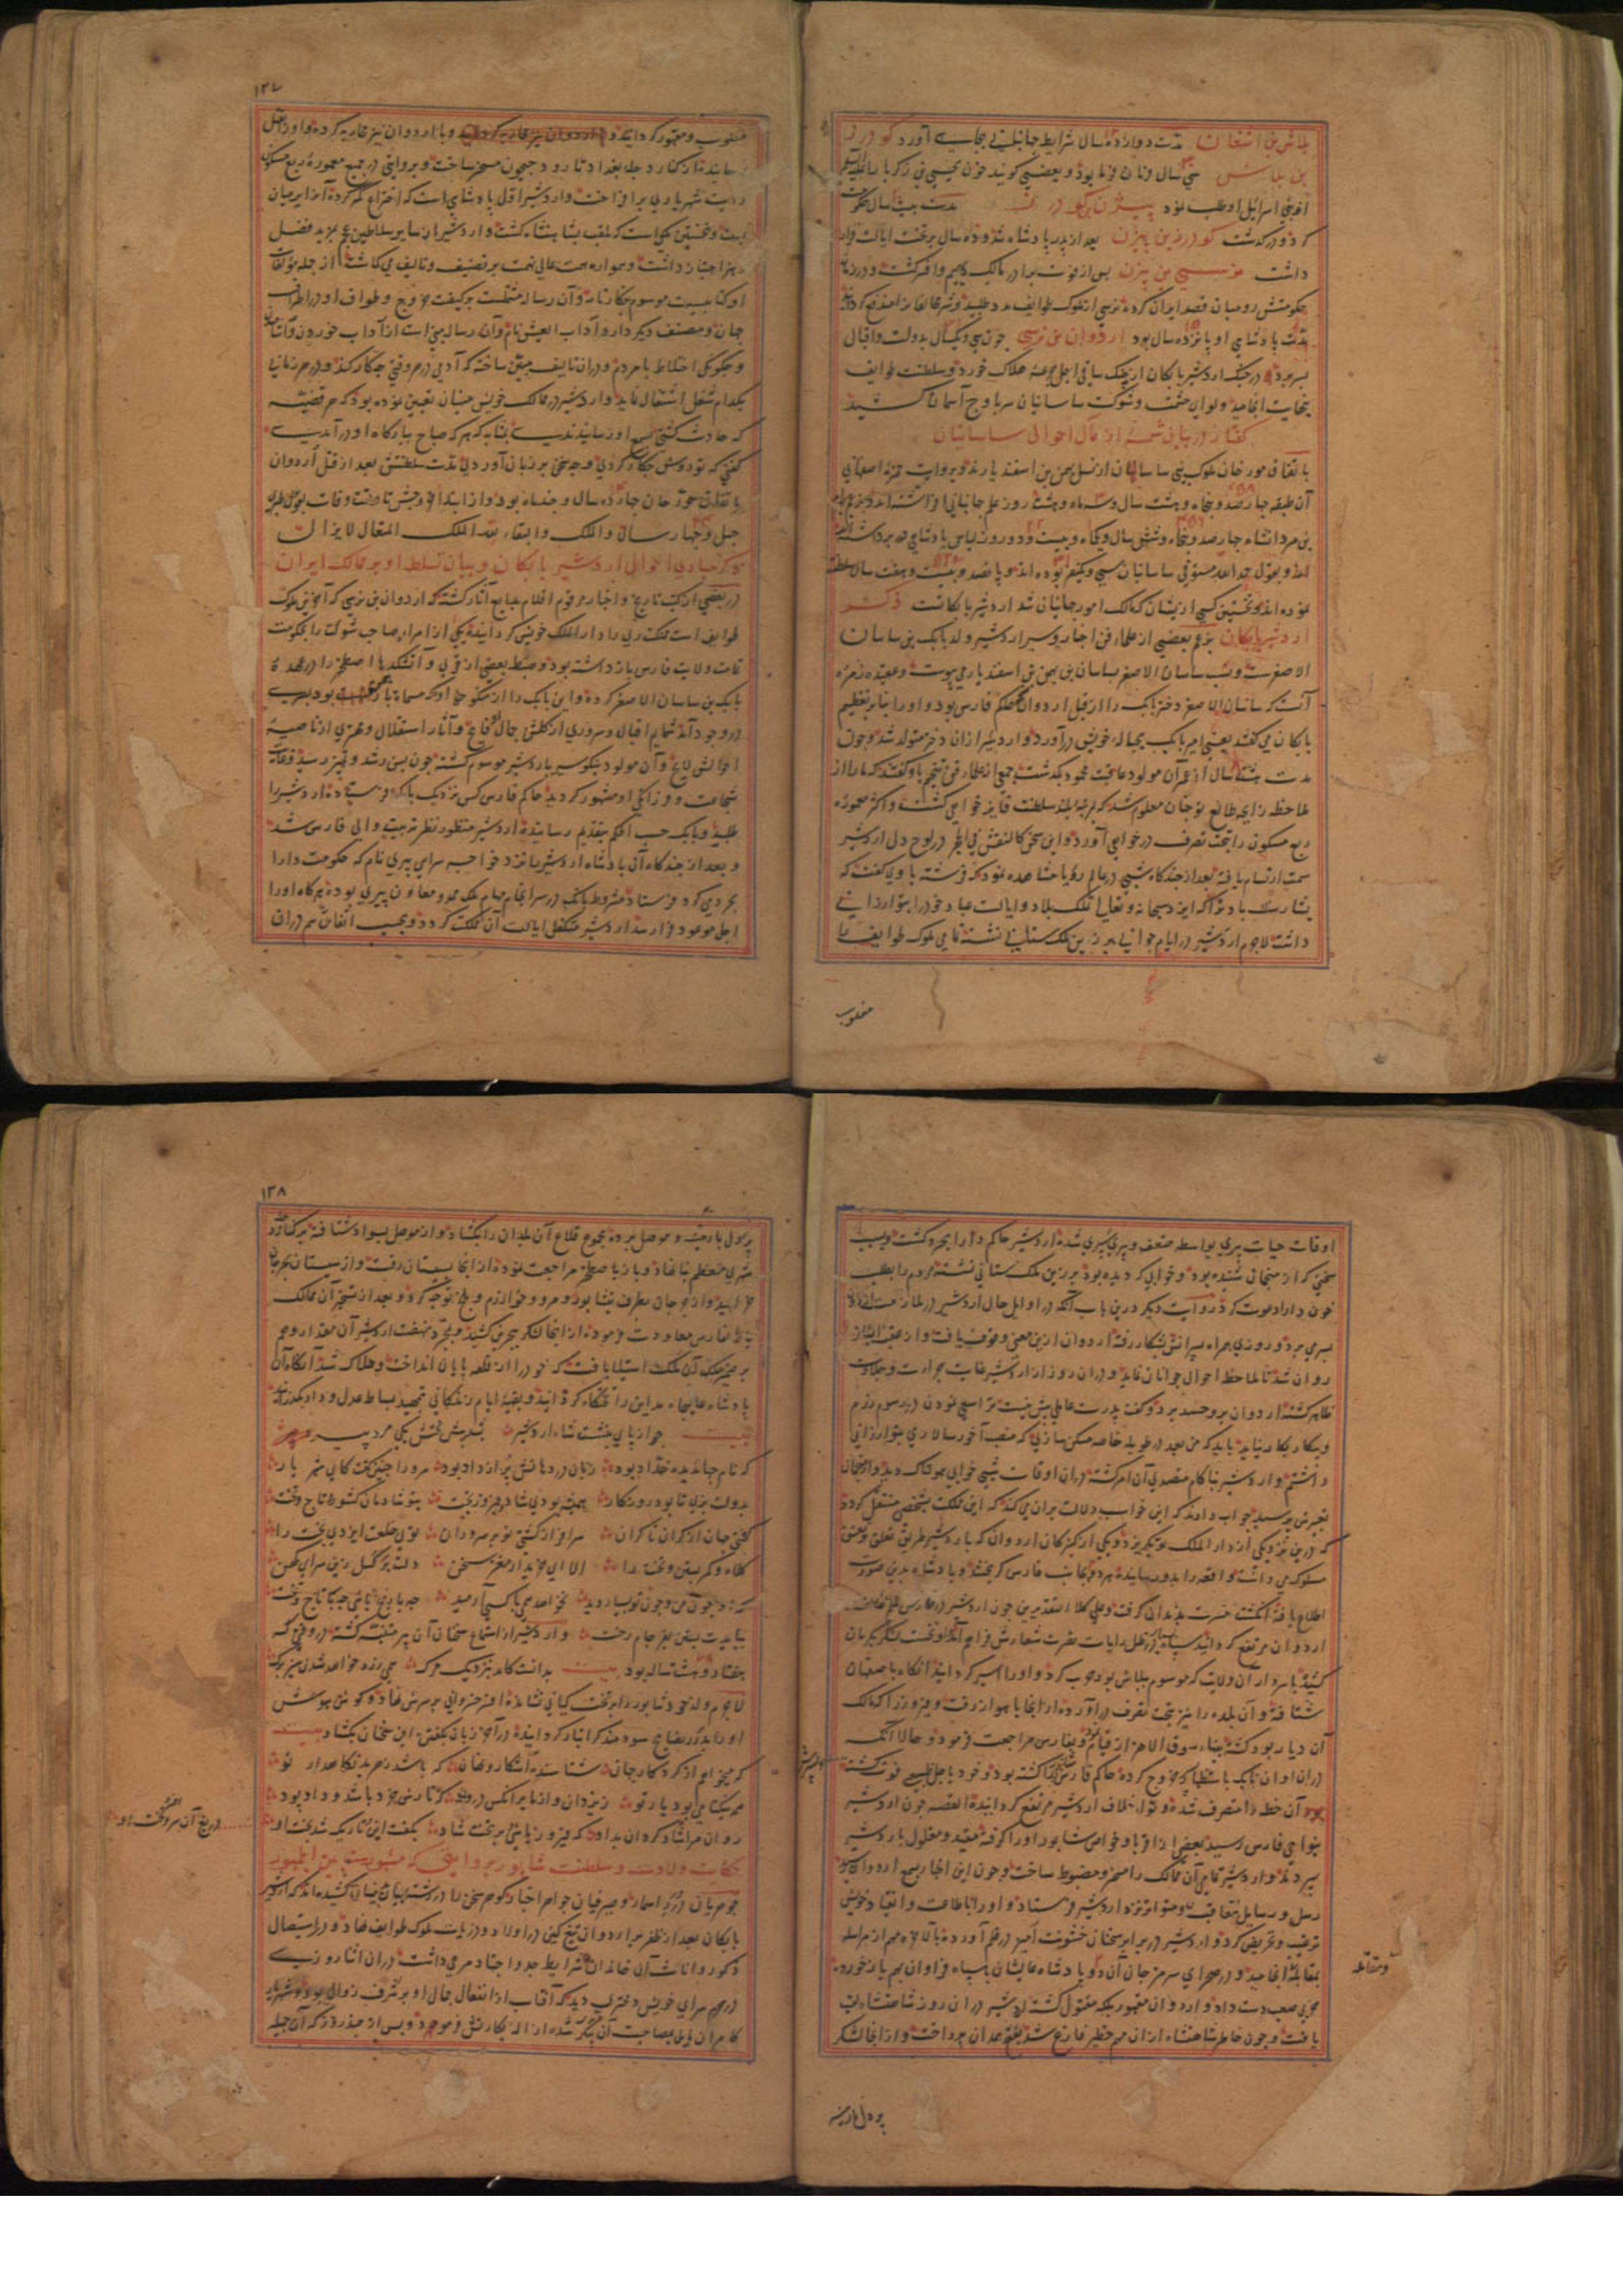 بلاش بن اشغان مدت دوازده سال شرایط جهانبانی بجای آورد
بن بلاش سی سال فرمان فرما بود و بعضی گویند خون یحیی بن زکریا
از بنی اسرائیل او طلب نمود مدت بیست سال حکومت
کرد و درگذشت گودرز بن بیژن بعد از پدر پادشاه شد و ده سال بر تخت ایالت قرار
داشت نرسی بن بیژن پس از فوت برادر مالک دیهیم و افسر گشت و در زمان
حکومتش رومیان قصد ایران کردند نرسی از ملوک طوایف مدد طلبید و شر مخالفان را مندفع گردانید
مدت پادشاهی او پانزده سال بود اردوان بن نرسی چون سی و یکسال بدولت و اقبال
بسر برد در جنگ اردشیر بابکان از دست ساقی اجل جرعه هلاک خورد و سلطنت طوایف
بنهایت انجامید و لوای حشمت و شوکت ساسانیان سر باوج آسمان کشید
گفتار در بیان شمه از مآل احوال ساسانیان
باتفاق مورخان ملوک بنی ساسان از نسل بهمن بن اسفندیارند و بروایت حمزه اصفهانی
آن طبقه چهارصد و پنجاه و هشت سال و سه ماه و هشت روز علم جهانبانی افراشته اند
بن مردانشاه چهارصد و پنجاه و شش سال و یکماه و بیست و دو روز لباس پادشاهی در بر داشته
اند و بقول حمدالله مستوفی ساسانیان سی و یکنفر بوده اند و پانصد و بیست و هفت سال سلطنت
نموده اند و نخستین کسی از ایشان که مالک امور جهانیان شد اردشیر بابکانست ذکر
اردشیر بابکان بزعم بعضی از علماء فن اخبار و سیر اردشیر ولد بابک بن ساسان
الاصغرست و نسب ساسان الاصغر بساسان بن بهمن بن اسفندیار می پیوست و عقیده زمره
آنست که ساسان الاصغر دختر بابک را از قبل اردوان حاکم فارس بود و او را بنابر تعظیم
بابکان می گفتند یعنی امیر بابک بحباله خویش درآورد و اردشیر از آن دختر متولد شد و چون
مدت هشت سال از عمر آن مولود عاقبت محمود بگذشت جمعی از علماء فن تنجیم با وی گفتند که ما را از
ملاحظه زایجه طالع تو چنان معلوم شد که بمرتبه بلند سلطنت فایز خواهی گشت و اکثر معموره
ربع مسکون را تحت تصرف در خواهی آورد و این سخن کالنقش فی الحجر در لوح دل اردشیر
سمت ارتسام یافته بعد از چندگاه شبی در عالم رؤیا مشاهده نمود که فرشته با وی گفت که
بشارت باد ترا که ایزد سبحانه و تعالی تملک بلاد و ایالت عباد خود را بتو ارزانی
داشت لاجرم اردشیر در ایام جوانی بر زین ملک ستانی نشسته تمامی ملوک طوایف را
مغلوب
۱۳۷
مغلوب و مقهور گردانید و با اردوان نیز محاربه کرده و او را بقتل
رسانید و از کنار دجله بغداد تا رود جیحون مسخر ساخت و بروایتی در جمیع معموره ربع مسکون
رایت شهریاری برافراخت و اردشیر اول پادشاهی است که
و نخستین ملکی است که ملقب بشاهنشاه گشت و اردشیر از سایر سلاطین عجم بمزید فضل
و هنر امتیاز داشت و همواره همت عالی نهمت بر تصنیف و تالیف می گماشت از جمله مؤلفات
او کتابیست موسوم بکارنامه و آن رساله مشتملست بر کیفیت خروج و طواف او در اطراف
جهان و مصنف دیگر دارد آداب العیش نام و آن رساله مبنی است از آداب خوردن و آشامیدن
و چگونگی اختلاط با مردم و در آن تالیف مبین ساخته که آدمی در هر وقتی چه کار کند و در هر زمانی
بکدام شغل اشتغال نماید و اردشیر در ممالک خویش منهیان تعیین نموده بود که هر قضیه
که حادث گشتی بسمع او رسانیدندی بمثابه که هر که صباح ببارگاه او درآمدی
گفتی که تو دوش چکار کردی و چه سخن بر زبان آوردی مدت سلطنتش بعد از قتل اردوان
چهارده سال و چند ماه بود و از ابتداء خروجش تا وقت وفات بقول
چهل و چهار سال والملک والبقاء بعد الملک المتعال لایزال
ذکر مبادی احوال اردشیر بابکان و بیان تسلط او بر ممالک ایران
در بعضی از کتب تاریخ و اخبار مرقوم اقلام بدایع آثار گشته که اردوان بن نرسی که آخرین ملوک
طوایف است مملکت ری را دارالملک خویش گردانیده یکی از امراء صاحب شوکت را بحکومت
تمامت ولایت فارس بازداشته بود و ضبط بعضی از قری و آتشکدها اصطخر را در عهده
بابک بن ساسان الاصغر کرده و این بابک را از منکوحه او که بود پسری
در وجود آمد شمایم اقبال و سروری از گلشن جمال او فایح و آثار استقلال و مهتری از ناصیه
احوالش لایح و آن مولود نیکو سیر باردشیر موسوم گشته چون بسن رشد و تمیز رسید و قصه
شجاعت و فرزانگی او مشهور گردید حاکم فارس کس نزدیک بابک فرستاده اردشیر را
طلبید و بابک حسب الحکم بتقدیم رسانیده اردشیر منظور نظر تربیت والی فارس شد
و بعد از چندگاه آن پادشاه اردشیر را نزد خواجه سرای پیری نام که حکومت دارا
بجرد می کرد فرستاد مشروط بآنکه در سرانجام مهام ملک ممد و معاون پیری بوده هرگاه او را
اجل موعود فرا رسد اردشیر متکفل ایالت آن مملکت گردد و بحسب اتفاق هم در آن
اوقات حیات پیری بواسطه ضعف و پیری سپری شده اردشیر حاکم دارابجرد گشت و بسبب
سخنی که از منجمان شنیده بود و خوابی که دیده بود بر زین ملک ستانی نشسته مردم را بطلب
خون دارا دعوت کرد و روایت دیگر درین باب آنکه در اوایل حال اردشیر در ملازمت اردوان
بسر می برد و روزی همراه پسرانش بشکار رفته اردوان ازین معنی وقوف یافت و از عقب ایشان
روان شد تا ملاحظه احوال جوانان نماید و در آن روز از اردشیر غایت جرأت و جلادت
ظاهر گشته اردوان برو حسد برد و گفت پدرت عاملی بیش نیست ترا اسپ نمودن در رسوم رزم
و پیکار بکار نیاید باید که من بعد در طویله خاصه مسکن سازی که منصب آخور سالاری بتو ارزانی
داشتم و اردشیر بناکام متصدی آن امر گشته در آن اوقات شبی خوابی هولناک دید و از منجمان
تعبیرش پرسید جواب دادند که این خواب دلالت بر آن می کند که این مملکت بشخصی منتقل گردد
که درین نزدیکی از دارالملک تو بگریزد و یکی از کنیزکان اردوان که با اردشیر طریق تعلق و تعشق
مسلوک می داشت واقعه را بدو رسانیده هر دو بجانب فارس گریختند و پادشاه بدین صورت
اطلاع یافته انگشت حسرت بدندان گرفت و علی کلا التقدیرین چون اردشیر در فارس
اردوان مرتفع گردانید سپاهی در ظل رایات نصرت شعارش فراهم آمد و نخست لشکر بکرمان
کشیده با سردار آن ولایت که موسوم ببلاش بود حرب کرد و او را اسیر گردانید آنگاه باصفهان
شتافته و آن بلده را نیز بتحت تصرف درآورده از آنجا باهواز رفت و فیروز را که ملک
آن دیار بود کشته بناء سوق الاهواز قیام نموده و بفارس مراجعت فرمود و حالا آنکه
در آن اوان بابک خروج کرده حاکم فارس را کشته بود و خود باجل طبیعی فوت گشته
آن خطه را متصرف شده و لوای خلاف اردشیر مرتفع گردانیده القصه چون اردشیر
بنواحی فارس رسید بعضی از اقربا و خواص شاپور او را گرفته مقید و مغلول باردشیر
سپردند و اردشیر تمامی آن ممالک را مسخر و مضبوط ساخت و چون این اخبار بسمع اردوان رسید
رسل و رسایل متعاقب و متواتر نزد اردشیر فرستاد و او را باطاعت و انقیاد خویش
ترغیب و تحریض کرد و اردشیر در برابر سخنان خشونت آمیز در قلم آورده بالاخره مهم از مراسله
بمقابله انجامید و در صحرای هرمزجان آن دو پادشاه عالیشان با سپاه فراوان بهم باز خوردند
حربی صعب دست داد و اردوان مقهور بلکه مقتول گشته اردشیر در آن روز شاهنشاه لقب
یافت و چون خاطر شاهنشاه از آن مهم خطیر فارغ شد بفتح همدان پرداخت و از آنجا لشکر
و مقاتله
۱۳۸
و موصل برده مجموع قلاع آن بلدان را بگشاد و از موصل بسواد شتافته بر کنار دجله
شهری معظم بنا نهاد و باز باصطخر مراجعت نموده از آنجا بسیستان رفت و از سیستان بجرجان
خرامید و از جرجان بطرف نیشابور و مرو و خوارزم و بلخ توجه کرد و بعد از تسخیر آن ممالک
بفارس معاودت فرموده از آنجا لشکر ببحرین کشید و بمجرد نهضت اردشیر آن مقدار وهم
بر ضمیر ملک آن مملکت استیلا یافت که خود را از قلعه بپایان انداخت و هلاک شد آنگاه آن
پادشاه عالیجاه مداین را تختگاه گردانید و بقیه ایام زندگانی بتمهید بساط عدل و داد بگذرانید
بیت چو از پای بنشست شاه اردشیر بشد پیش تختش یکی مرد پیر
که نام جهاندیده خراد بود زبان در دهانش پر از داد بود مر او را چنین گفت کای شهریار
بدولت بزی تا بود روزگار همیشه بدی شاد و پیروزبخت بتو شادمان کشور و تاج و تخت
سرافراز گشتی تو بر سروران توی خلعت ایزدی بخت را
کلاه و کمر بستن و تخت را الا ای خریدار مغز سخن دلت برگسل زین سرای کهن
که او چون من و چون تو بسیار دید نخواهد همی با کسی آرمید
ببایدت بستن بفرجام رخت و اردشیر از استماع سخنان آن پیر متنبه گشته در وقتی که
هفتاد و هشت ساله بود بیت بدانست کامد بنزدیک مرگ همی زرد خواهد شدن سبز برگ
لاجرم ولد خود شاپور را بر تخت کیانی نشانده افسر خسروانی بر سرش نهاد و گوش هوش
او را بدرر نصایح سودمند گرانبار گردانیده در آخر زبان بگفتن این سخنان بگشاد بیت
که میخواهم از کردگار جهان شناسنده آشکار و نهان که باشد ز هر بد نگهدار تو
همه نیکنامی بود یار تو ز یزدان و از ما بر آنکس درود که تارش خرد باشد و داد پود
روان مرا شاد گردان بداد که پیروز باشی بر تخت شاد بگفت این و تاریک شد بخت او
دریغ آن سر و افسر و تخت او
حکایت ولادت و سلطنت شاپور
جوهریان درر اسمار و صیرفیان جواهر اخبار گوهر سخن را در رشته بیان کشیده اند که اردشیر
بابکان بعد از ظفر بر اردوان تیغ کین در اولاد و ذریات ملوک طوایف نهاد و در استیصال
ذکور و اناث آن خاندان شرایط جد و اجتهاد مرعی داشت در آن اثنا روزی
در حرم سرای خویش دختری دید که آفتاب از انفعال جمال او بر شرف زوال بود
کامران مایل بمصاحبت آن شده ازاله بکارتش فرمود و پس از چند روز که آن جمیله